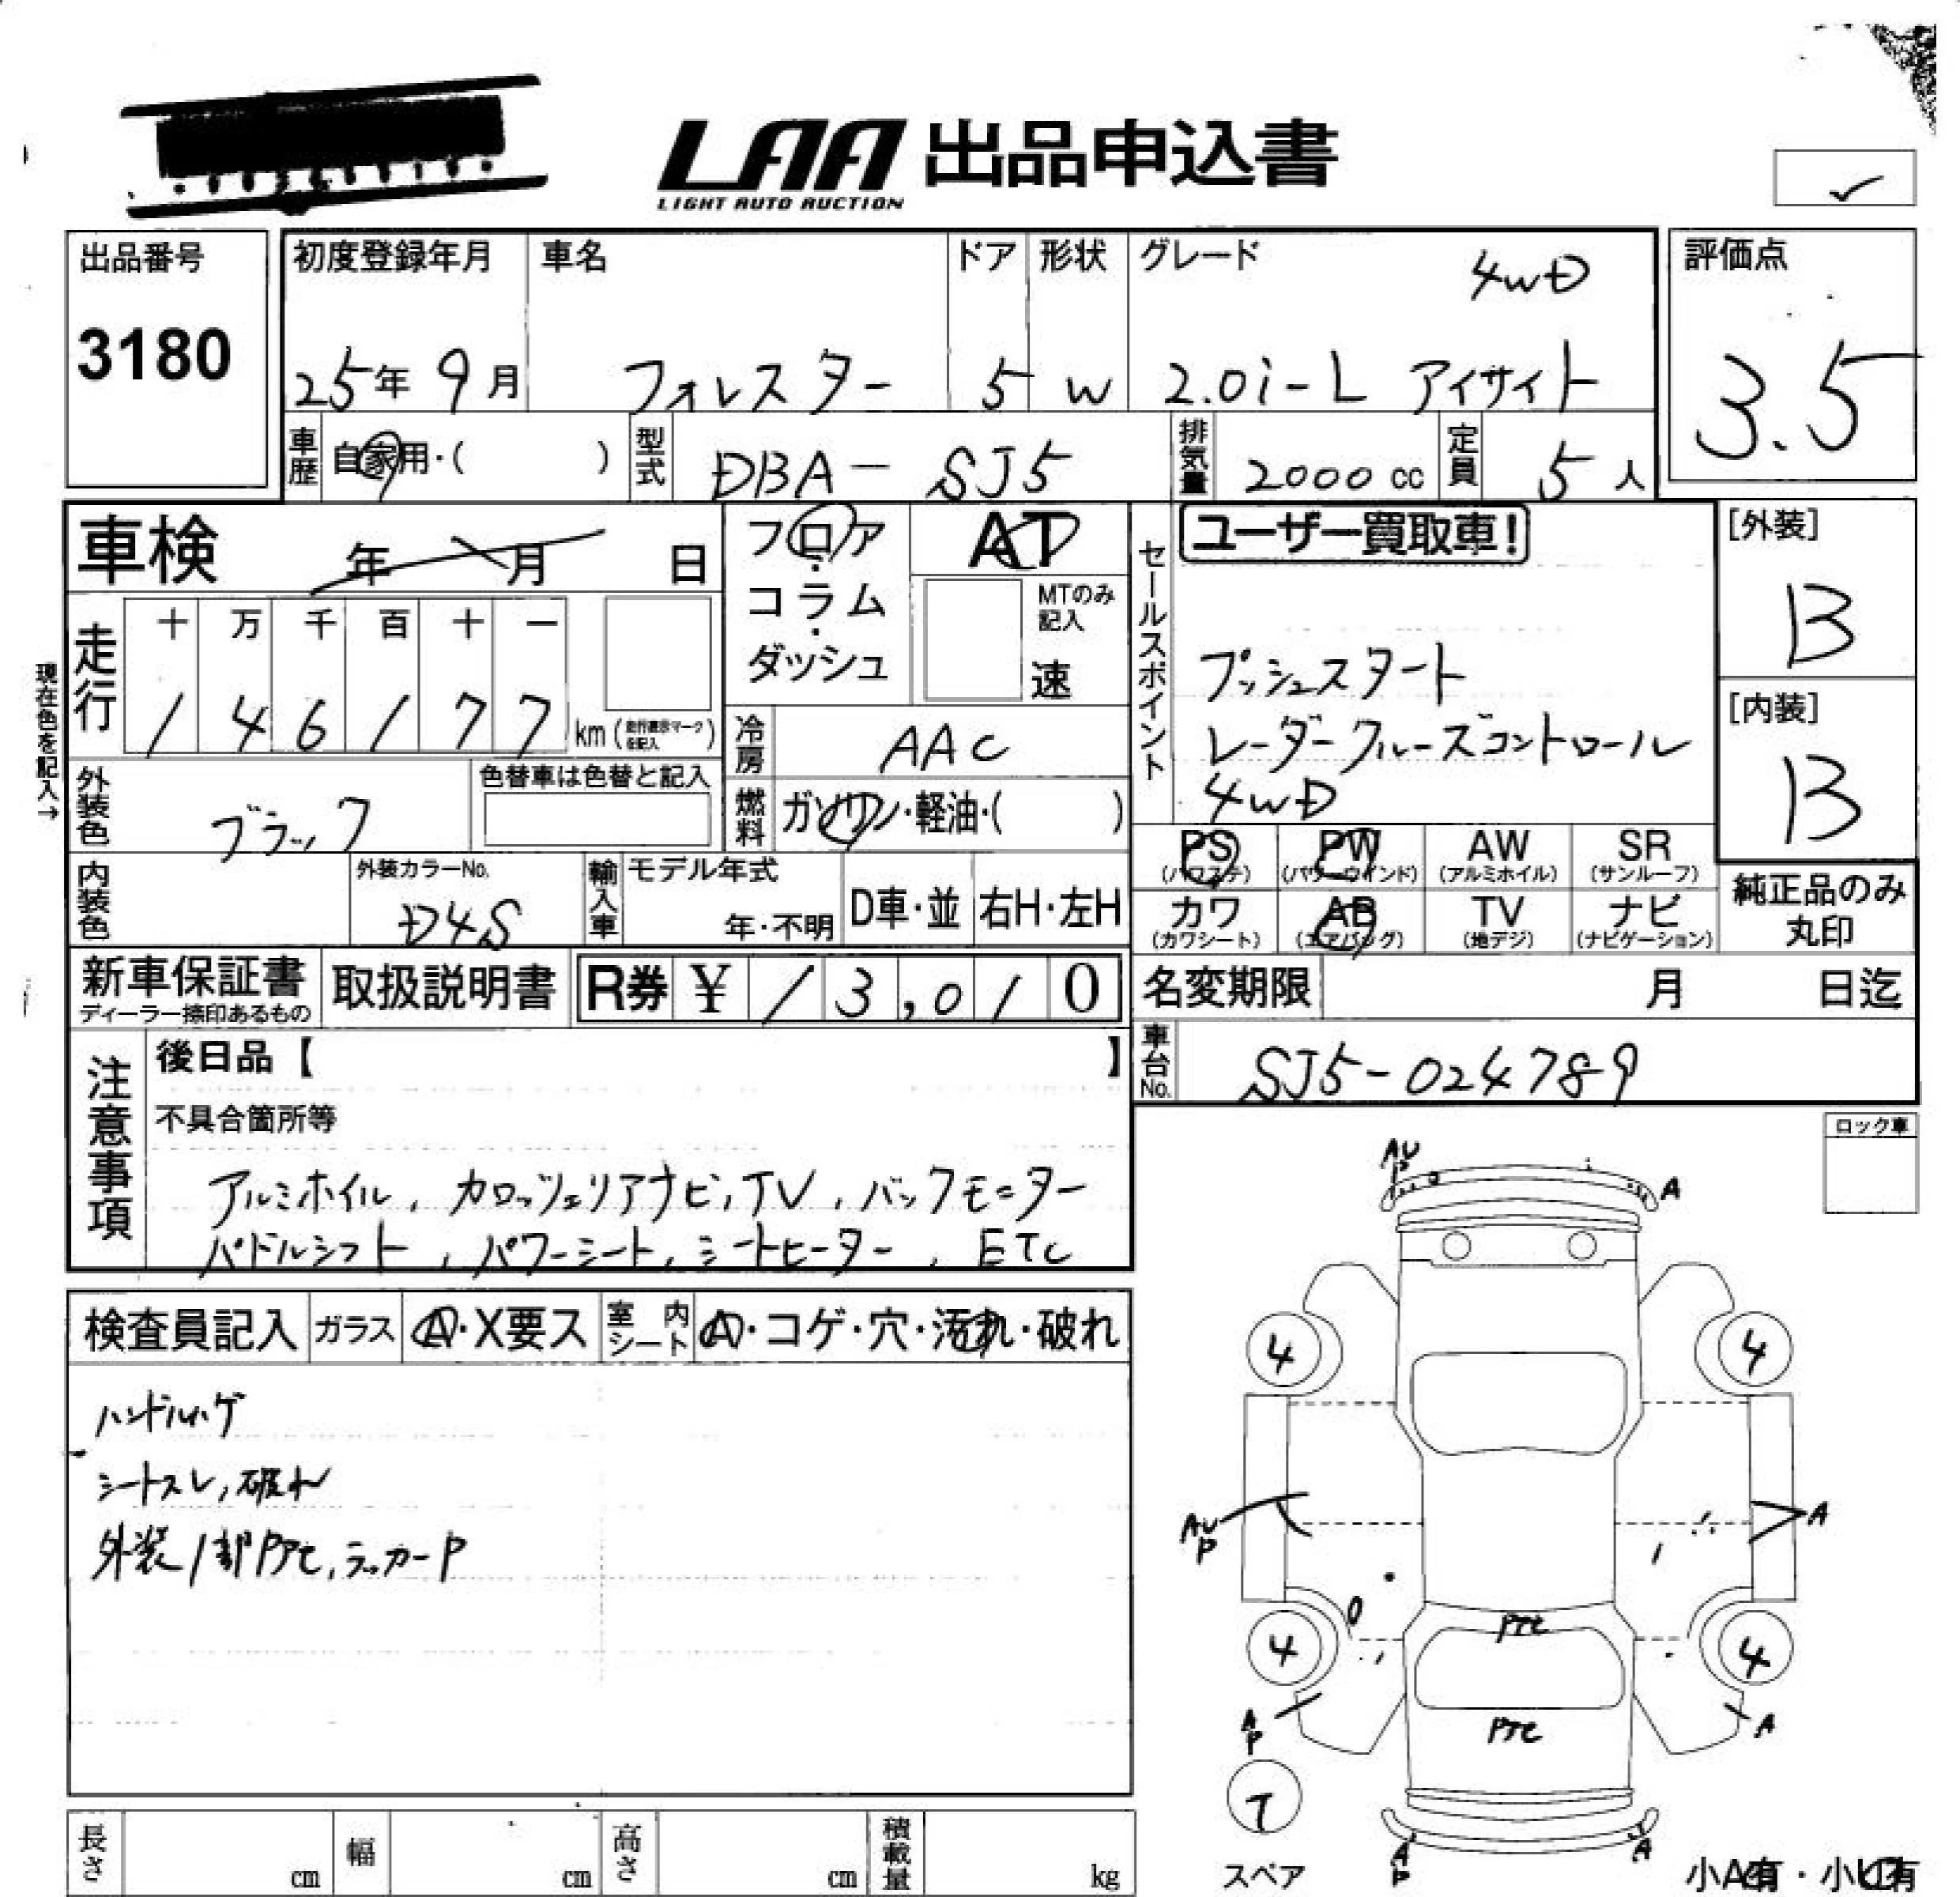 LAA 出品申込書
LIGHT AUTO AUCTION
出品番号
3180
初度登録年月
25年 9月
車名
フォレスター
ドア
5
形状
W
グレード
4WD
2.0i-L アイサイト
評価点
3.5
車歴
自家用・( )
型式
DBA- SJ5
排気量
2000 cc
定員
5人
車検 年 月 日
走行
十 万 千 百 十 一
1 4 6 1 7 7 km (走行表示マークを記入)
現在色を記入→
フロア・コラム・ダッシュ
AT
MTのみ記入
速
冷房
AAC
燃料
ガソリン・軽油・( )
セールスポイント
ユーザー買取車!
プッシュスタート
レーダークルーズコントロール
4WD
[外装]
B
[内装]
B
外装色
ブラック
色替車は色替と記入
内装色
外装カラーNo.
D4S
輸入車
モデル年式
年・不明
D車・並
右H・左H
PS (パワステ)
PW (パワーウインド)
AW (アルミホイル)
SR (サンルーフ)
カワ (カワシート)
AB (エアバッグ)
TV (地デジ)
ナビ (ナビゲーション)
純正品のみ丸印
新車保証書
ディーラー捺印あるもの
取扱説明書
R券 ¥ 13,010
名変期限 月 日迄
車台No.
SJ5-024789
注意事項
後日品【 】
不具合箇所等
アルミホイル, カロッツェリアナビ, TV, バックモニター
パドルシフト, パワーシート, シートヒーター, ETC
ロック車
検査員記入
ガラス
A・X要ス
室内シート
A・コゲ・穴・汚れ・破れ
ハンドルハゲ
シートスレ, 破れ
外装1部Pアセ, ラッカーP
AU
P
A
4
4
AU
P
A
4
4
Pアセ
A
P
A
Pアセ
T
スペア
A
P
A
小A有・小U有
長さ cm
幅 cm
高さ cm
積載量 kg